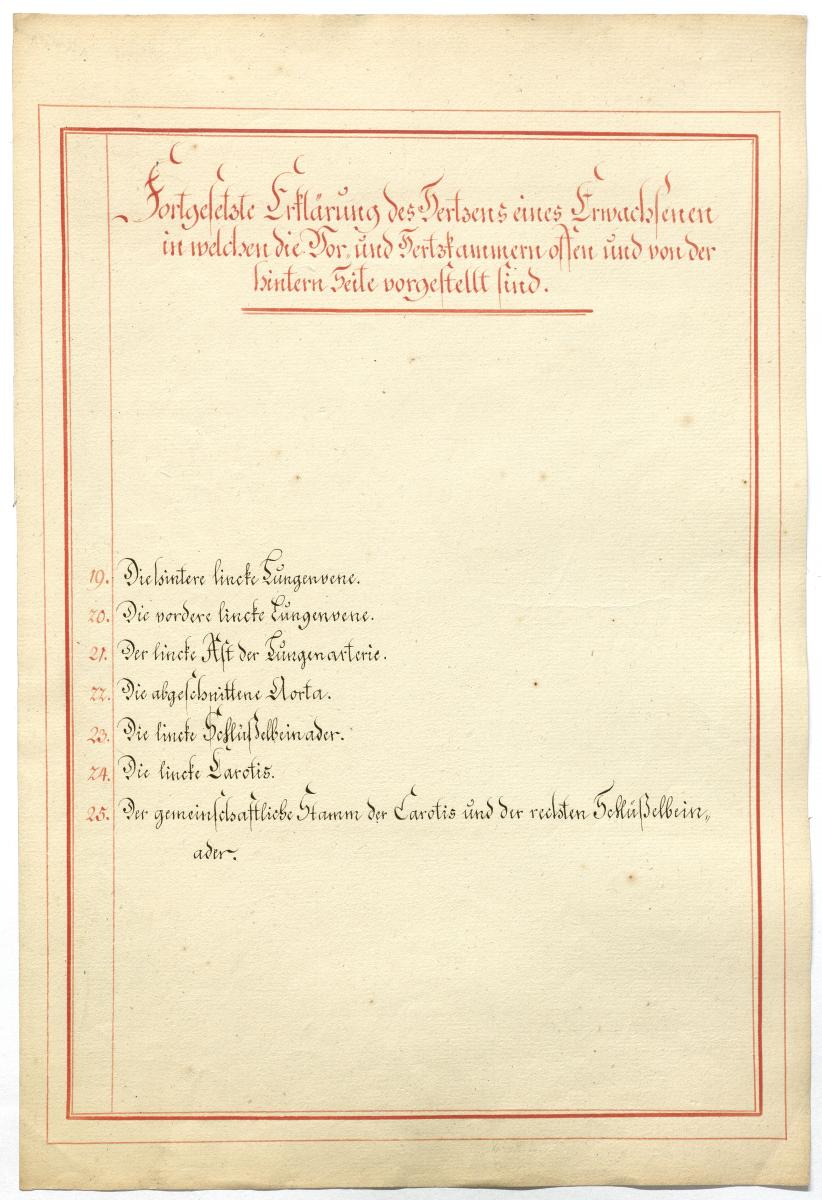 Fortgesetzte Erklärung des Hertzens eines Erwachsenen
in welchen die Vor, und Hertzkammern offen und von der
hintern Seite vorgestellt sind.
19. Die hintere lincke Lungenvene.
20. Die vordere lincke Lungenvene.
21. Der lincke Ast der Lungenarterie.
22. Die abgeschnittene Aorta.
23. Die lincke Schlüßelbeinader.
24. Die lincke Carotis.
25. Der gemeinschaftliche Stamm der Carotis und der rechten Schlüßelbein„
ader.